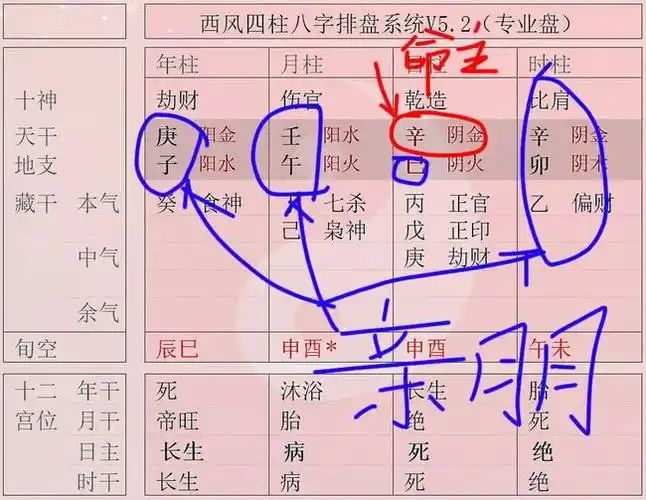 西风四柱八字排盘系统V5.2(专业盘)
命主
年柱 月柱 日柱 时柱
十神 劫财 伤官 乾造 比肩
天干 庚 阳金 壬 阳水 辛 阴金 辛 阴金
地支 子 阳水 午 阳火 巳 阴火 卯 阴木
藏干 本气 癸 食神 七杀 丙 正官 乙 偏财
己 枭神 戊 正印
中气 庚 劫财
余气
旬空 辰巳 申酉* 申酉 午未
亲朋
十二 年干 死 沐浴 长生 胎
宫位 月干 帝旺 胎 绝 死
日主 长生 病 死 绝
时干 长生 病 死 绝